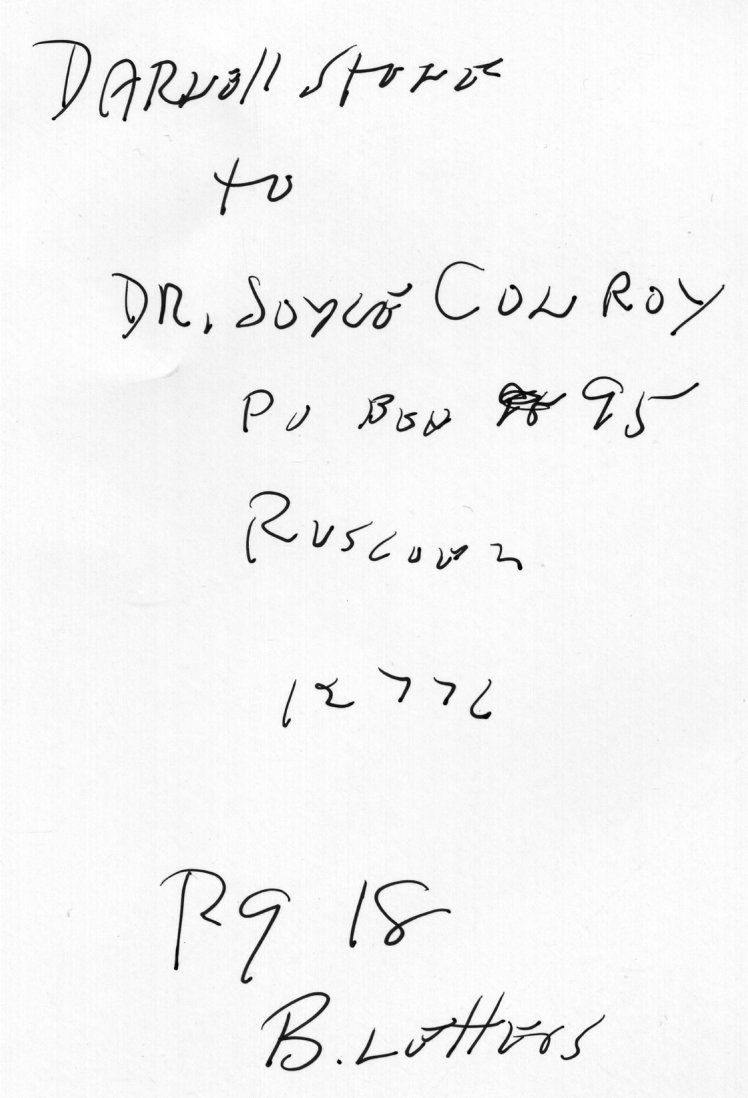 DARNell Stone
to
DR. Joyce CONROY
PO BOX 95
Roscoe
12776
Pg 18
B. Letters